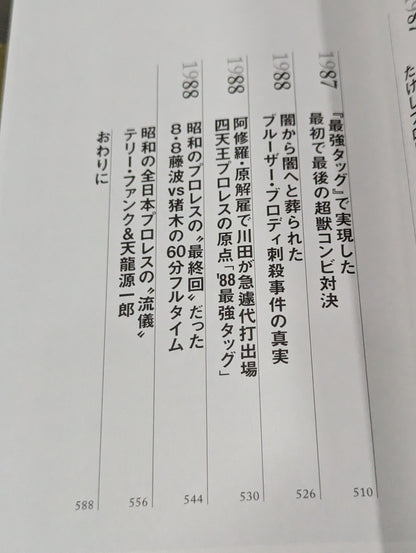 たけし
1987
『最強タッグ』で実現した
最初で最後の超獣コンビ対決
510
1988
闇から闇へと葬られた
ブルーザー・ブロディ刺殺事件の真実
526
1988
阿修羅・原解雇で川田が急遽代打出場
四天王プロレスの原点「'88最強タッグ」
530
1988
昭和のプロレスの〝最終回〟だった
8・8藤波vs猪木の60分フルタイム
544
昭和の全日本プロレスの〝流儀〟
テリー・ファンク&天龍源一郎
556
おわりに
588